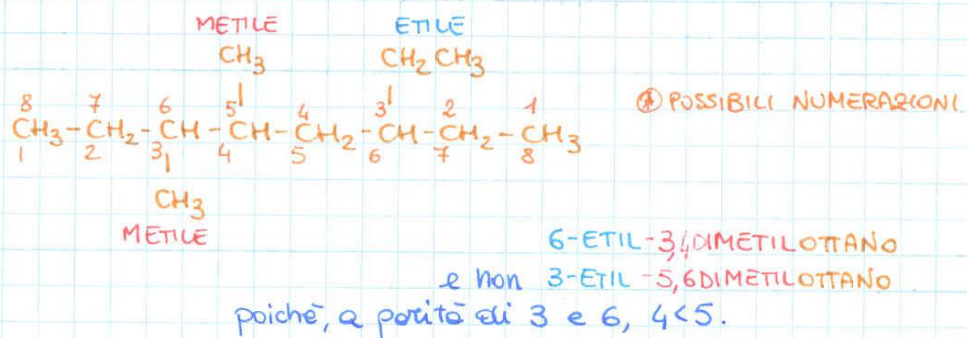 METILE ETILE
CH3 CH2 CH3
8 7 6 5 4 3 2 1
CH3-CH2-CH-CH-CH2-CH-CH2-CH3
1 2 3 4 5 6 7 8
* POSSIBILI NUMERAZIONI
CH3
METILE
6-ETIL-3,4DIMETILOTTANO
e non 3-ETIL-5,6DIMETILOTTANO
poichè, a parità di 3 e 6, 4<5.